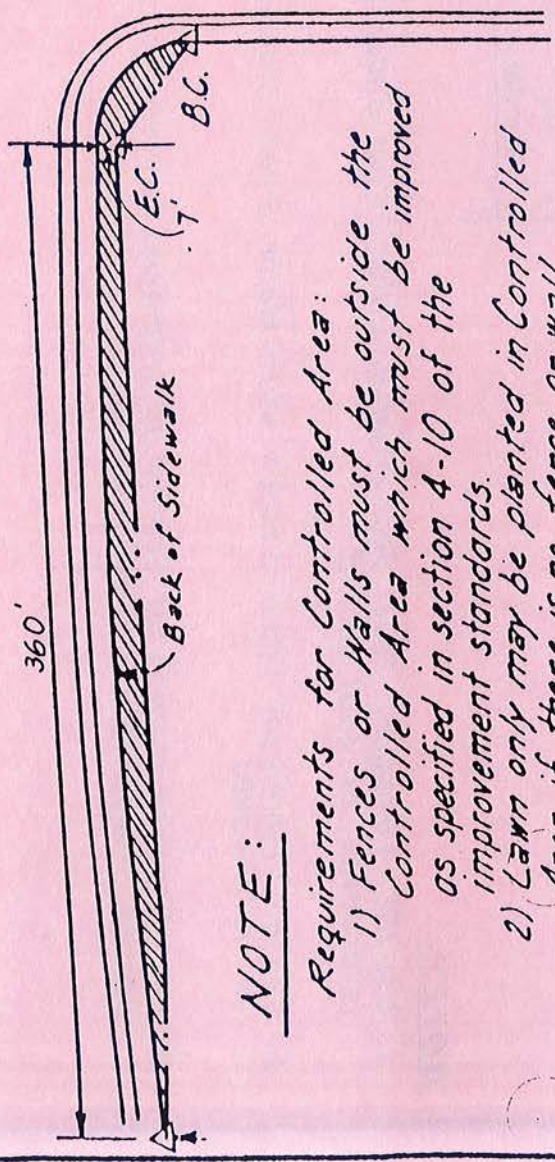 360'
E.C.
7'
B.C.
Back of Sidewalk
NOTE:
Requirements for Controlled Area:
1) Fences or Walls must be outside the
Controlled Area which must be improved
as specified in section 4-10 of the
improvement standards.
2) Lawn only may be planted in Controlled
Area if there is no fence or wall